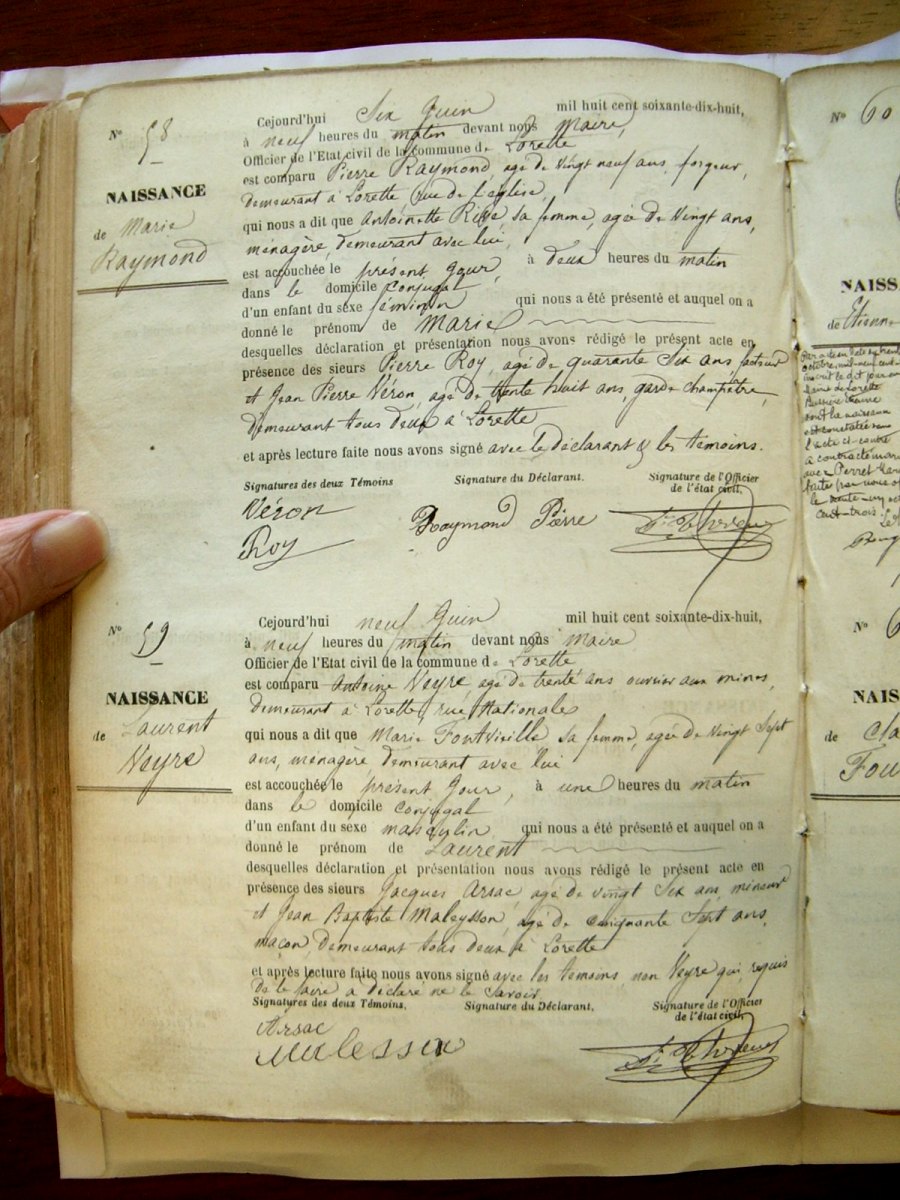 Nº 58
NAISSANCE
de Marie
Raymond
Cejourd'hui Six Juin mil huit cent soixante-dix-huit,
à neuf heures du matin devant nous Maire,
Officier de l'Etat civil de la commune de Lorette
est comparu Pierre Raymond, agé de vingt neuf ans, forgeur,
demeurant à Lorette, rue de l'église,
qui nous a dit que Antoinette Rive sa femme, agée de vingt ans,
ménagère, demeurant avec lui,
est accouchée le présent jour, à deux heures du matin
dans le domicile conjugal
d'un enfant du sexe féminin qui nous a été présenté et auquel on a
donné le prénom de Marie
desquelles déclaration et présentation nous avons rédigé le présent acte en
présence des sieurs Pierre Roy, agé de quarante Six ans, facteur
et Jean Pierre Véron, agé de trente huit ans, garde champêtre,
demeurant tous deux à Lorette
et après lecture faite nous avons signé avec le déclarant & les témoins.
Signatures des deux Témoins Signature du Déclarant. Signature de l'Officier
de l'état civil,
Véron
Raymond Pierre
Roy
Nº 59
NAISSANCE
de Laurent
Veyre
Cejourd'hui neuf Juin mil huit cent soixante-dix-huit,
à neuf heures du matin devant nous Maire
Officier de l'Etat civil de la commune de Lorette
est comparu Antoine Veyre, agé de trente ans ouvrier aux mines,
demeurant à Lorette, rue Nationale
qui nous a dit que Marie Fontvieille sa femme, agée de vingt Sept
ans, ménagère demeurant avec lui
est accouchée le présent jour, à une heures du matin
dans le domicile conjugal
d'un enfant du sexe masculin qui nous a été présenté et auquel on a
donné le prénom de Laurent
desquelles déclaration et présentation nous avons rédigé le présent acte en
présence des sieurs Jacques Arsac, agé de vingt Six ans mineur
et Jean Baptiste Maleysson, agé de cinquante Sept ans,
maçon, demeurant tous deux à Lorette
et après lecture faite nous avons signé avec les témoins, non Veyre qui, requis
de le faire a déclaré ne le savoir.
Signatures des deux Témoins, Signature du Déclarant. Signature de l'Officier
de l'état civil,
Arsac
Nº 60
NAISS
de Etienne
octobre mil neuf cent
de Lorette
dont la naissance
est constatée
l'acte ci-contre
a contracté mar
avec Perret
faite par nous
cent trois.
Nº 6
NAIS
de Cla
Fou